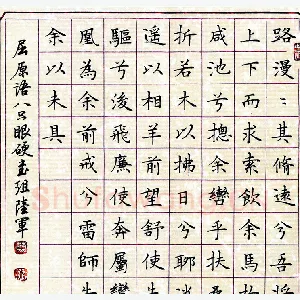 路漫〻其脩遠兮吾將
上下而求索飲余馬於
咸池兮摠余轡乎扶桑
折若木以拂日兮耶逍
遥以相羊前望舒使先
驅兮後飛廉使奔屬鸞
凰為余前戒兮雷師告
余以未具
屈原語八只眼硬書組陸軍